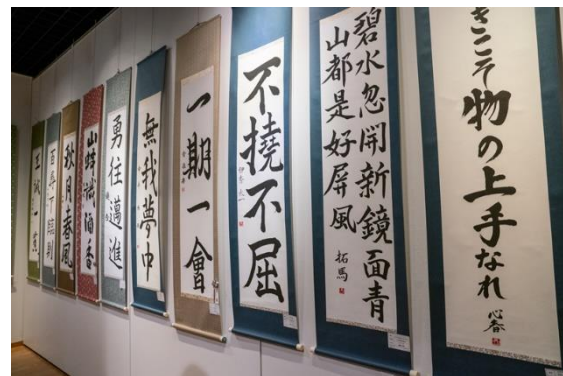 きこそ物の上手なれ
碧水忽開新鏡面青
山都是好屏風
拓馬
不撓不屈
一期一會
無我夢中
勇往邁進
酒香
秋月春風
誠一